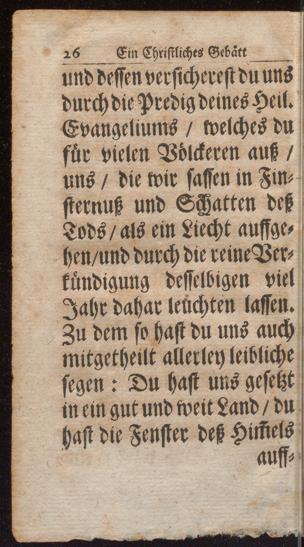 26 Ein Christliches Gebätt
und dessen versicherest du uns
durch die Predig deines Heil.
Evangeliums / welches du
für vielen Völckeren auß /
uns / die wir sassen in Fin-
sternuß und Schatten deß
Tods / als ein Liecht auffge-
hen / und durch die reine Ver-
kündigung desselbigen viel
Jahr dahar leuchten lassen.
Zu dem so hast du uns auch
mitgetheilt allerley leibliche
segen : Du hast uns gesetzt
in ein gut und weit Land / du
hast die Fenster deß Him̃els
auff-